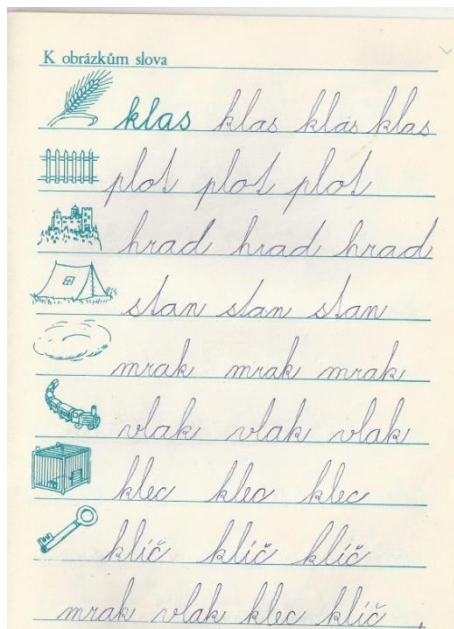 K obrázkům slova
klas klas klas klas
plot plot plot
hrad hrad hrad
stan stan stan
mrak mrak mrak
vlak vlak vlak
klec klec klec
klíč klíč klíč
mrak vlak klec klíč